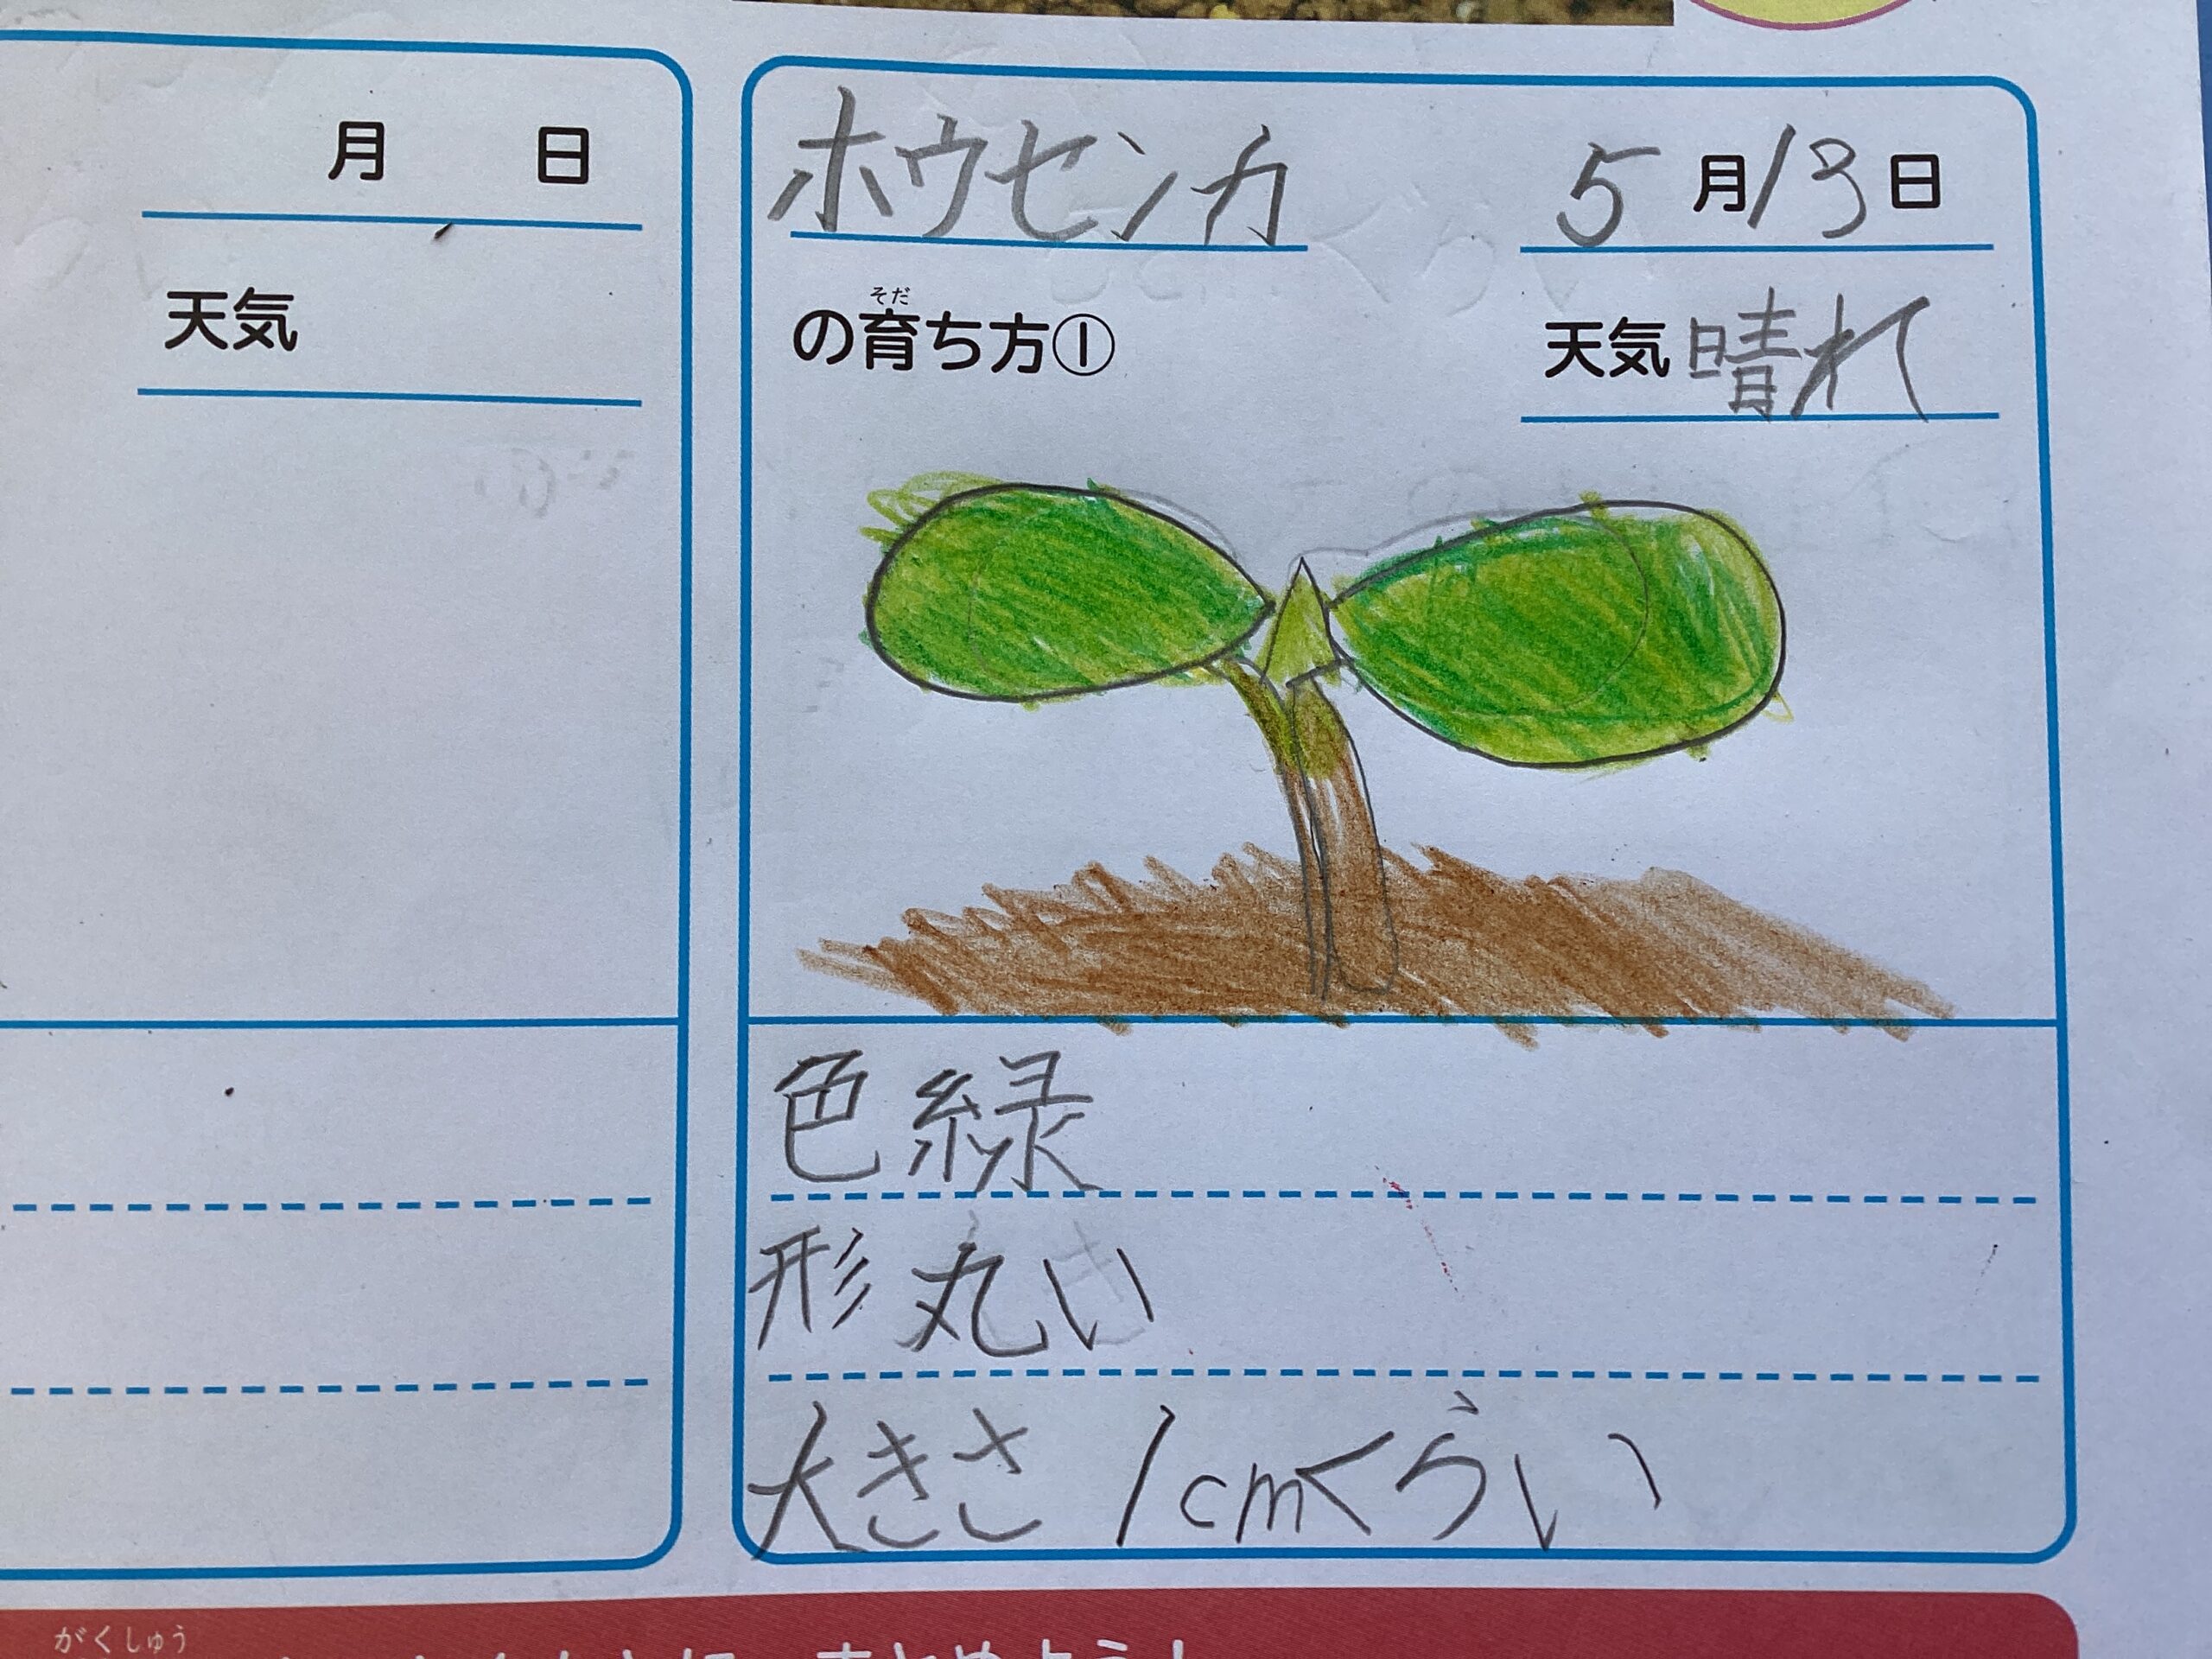 月 日
天気
ホウセンカ 5月13日
そだ
の育ち方① 天気 晴れ
色 緑
形 丸い
大きさ 1cmくらい
がくしゅう
まとめよう!